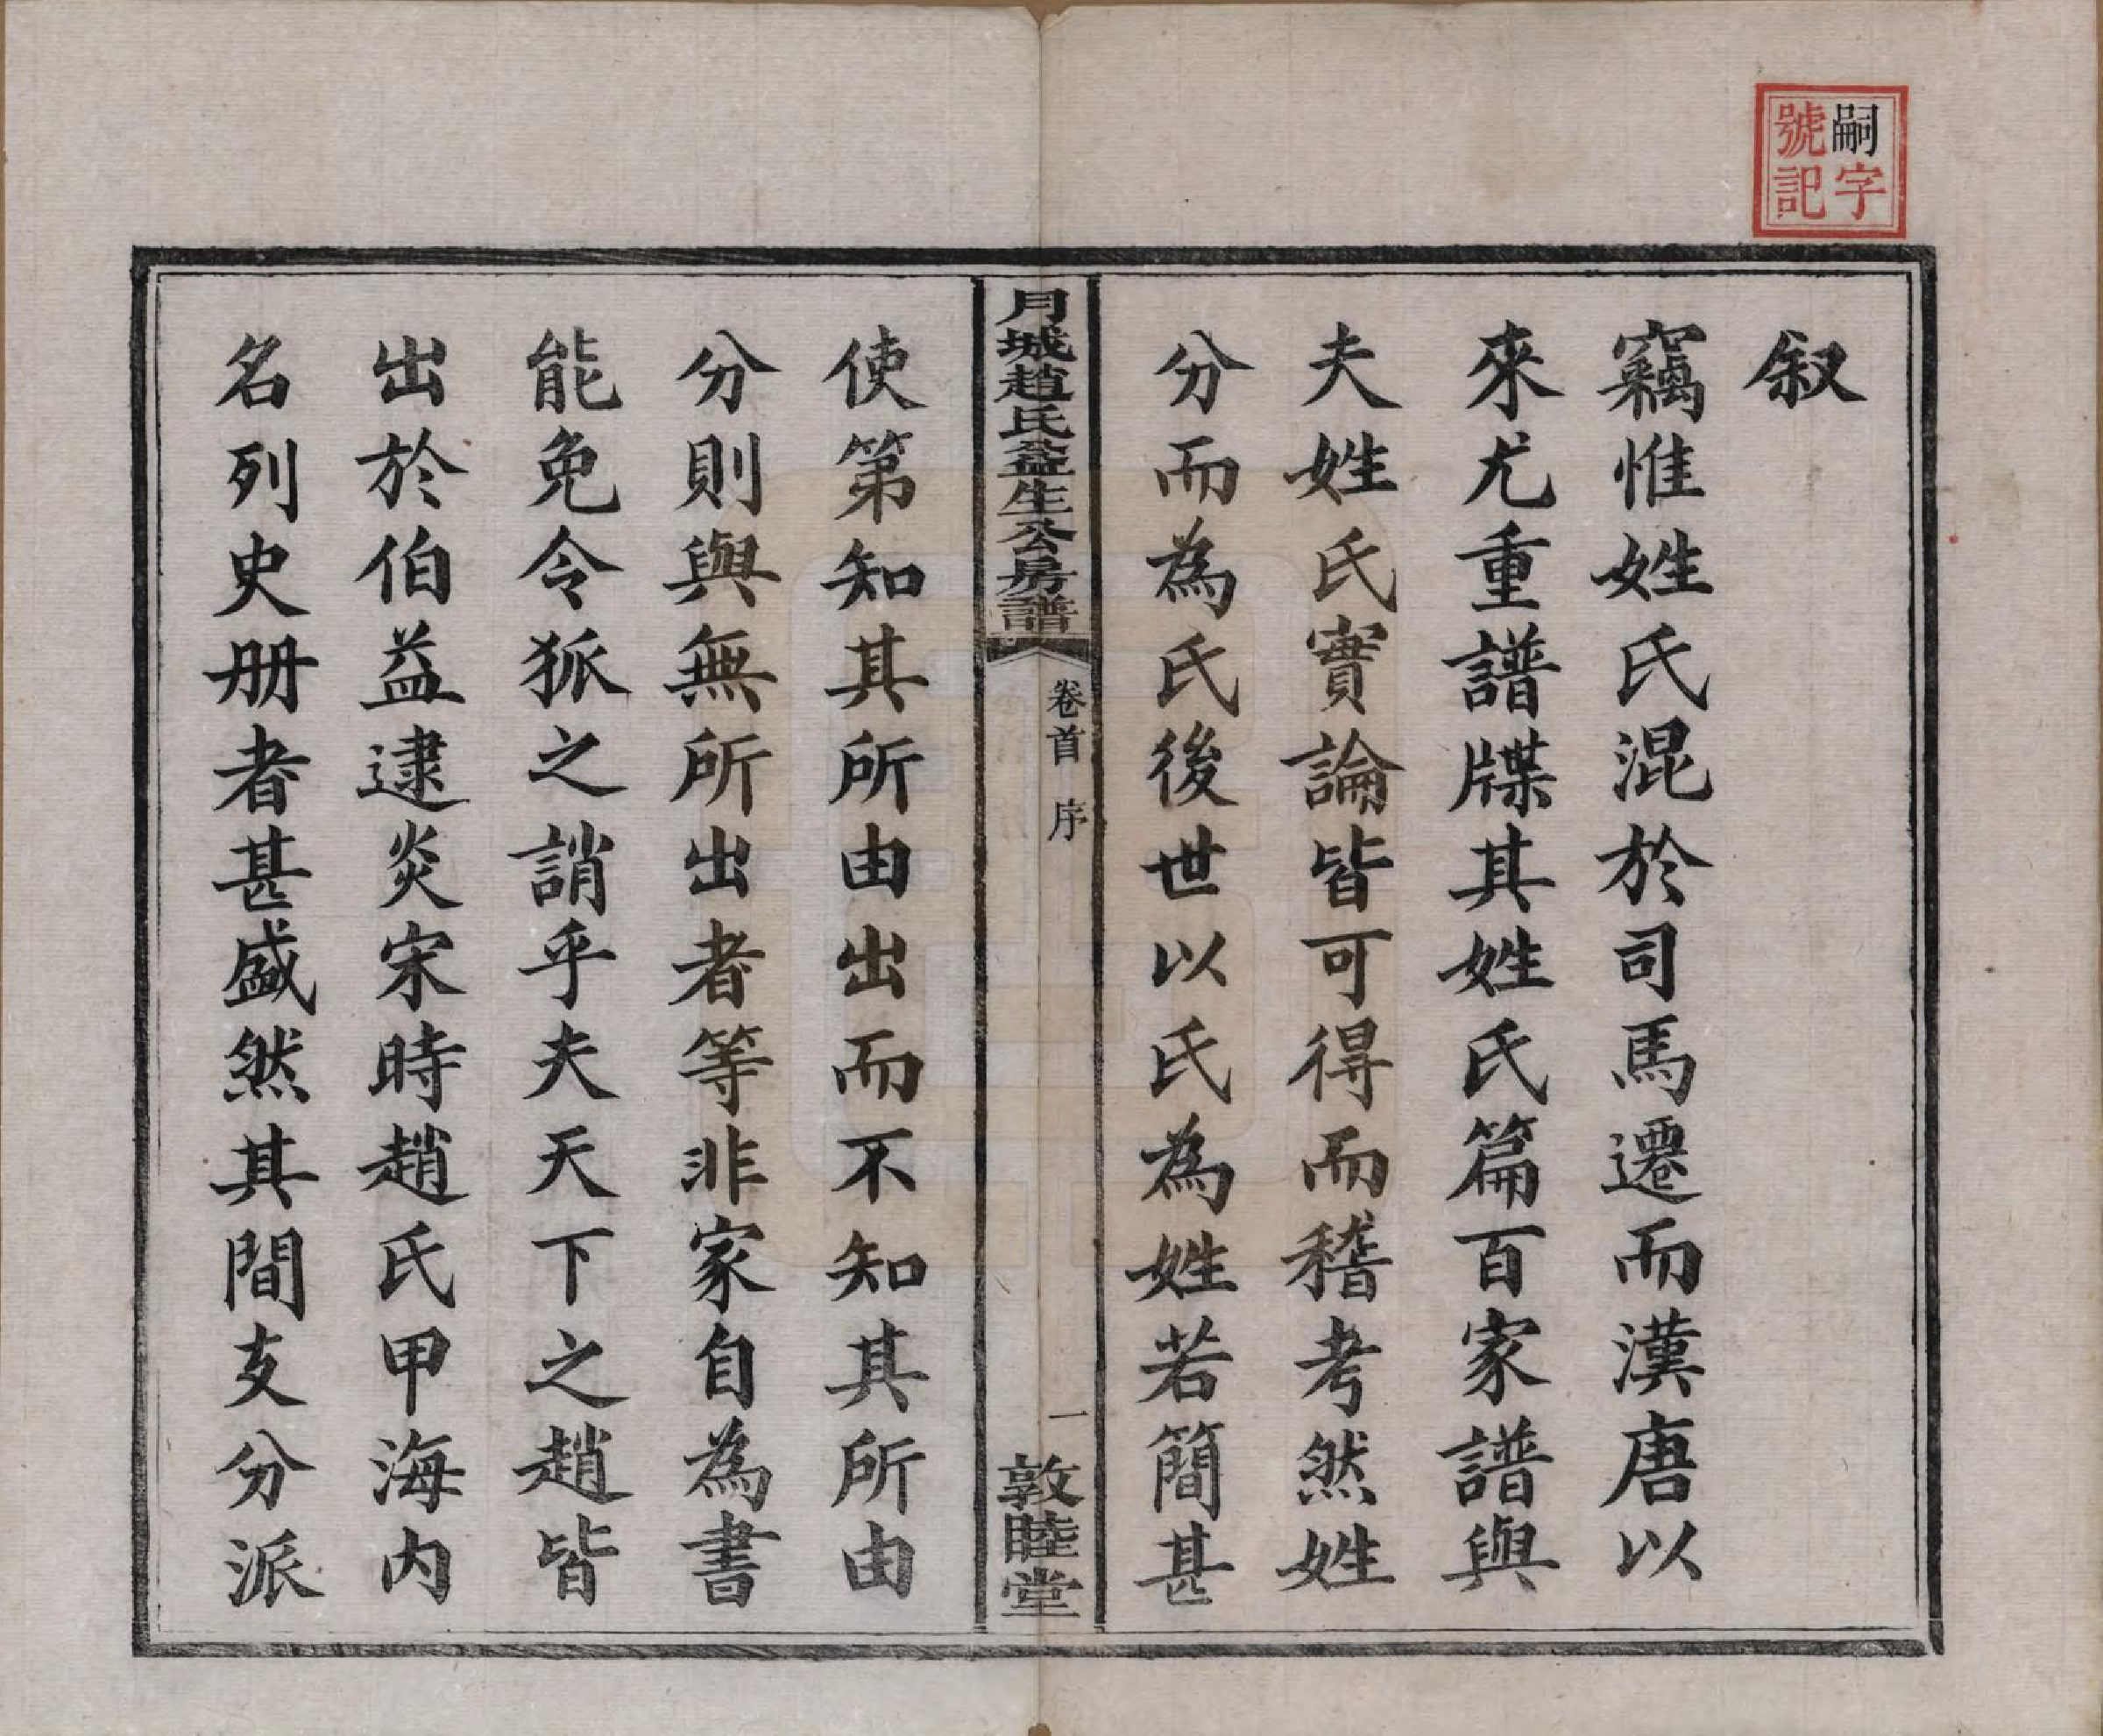 嗣字
號記
叙
竊惟姓氏混於司馬遷而漢唐以
來尤重譜牒其姓氏篇百家譜與
夫姓氏實論皆可得而稽考然姓
分而為氏後世以氏為姓若簡甚
月城趙氏益生公房譜
卷首 序
一
敦睦堂
使第知其所由出而不知其所由
分則與無所出者等非家自為書
能免令狐之誚乎夫天下之趙皆
出於伯益逮炎宋時趙氏甲海內
名列史册者甚盛然其間支分派